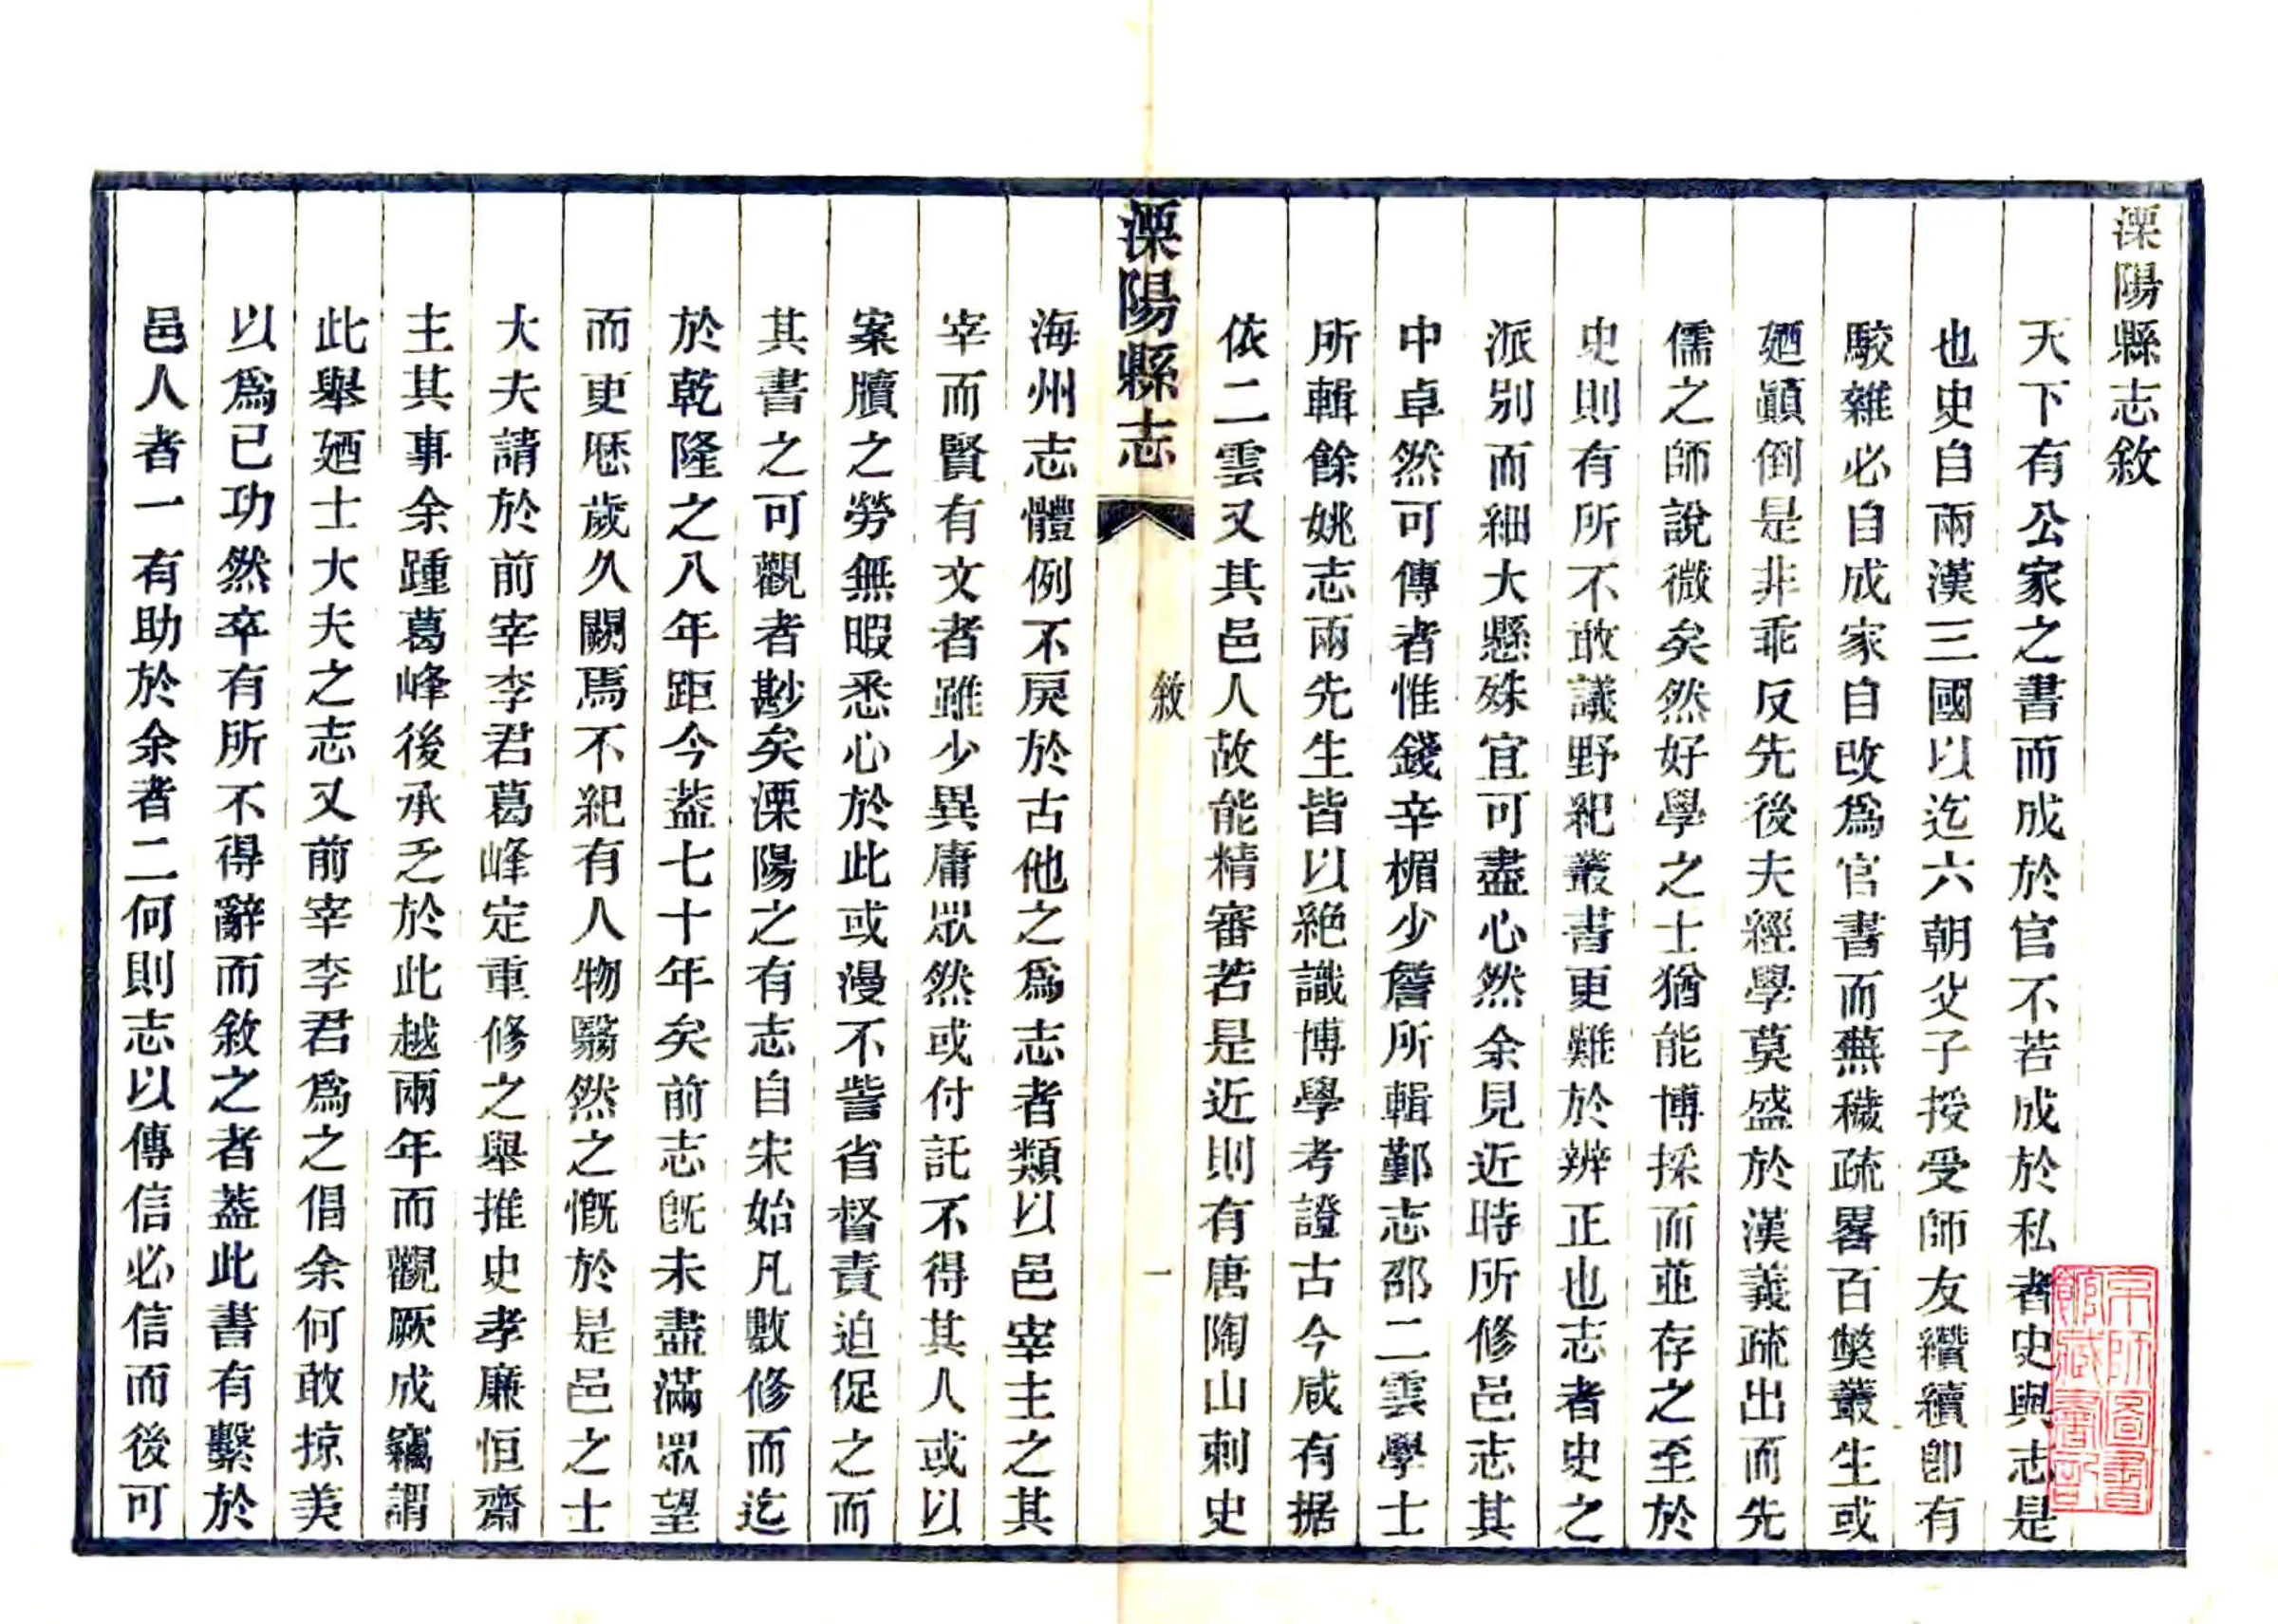 溧陽縣志敘
天下有公家之書而成於官不若成於私者史與志是
也史自兩漢三國以迄六朝父子授受師友纘續卽有
駮雜必自成家自改爲官書而蕪穢疏畧百獘叢生或
廼顚倒是非乖反先後夫經學莫盛於漢義疏出而先
儒之師說微矣然好學之士猶能博採而並存之至於
史則有所不敢議野紀叢書更難於辨正也志者史之
派别而細大懸殊宜可盡心然余見近時所修邑志其
中卓然可傳者惟錢辛楣少詹所輯鄞志邵二雲學士
所輯餘姚志兩先生皆以絕識博學考證古今咸有据
依二雲又其邑人故能精審若是近則有唐陶山刺史
溧陽縣志
敘
一
海州志體例不戾於古他之爲志者類以邑宰主之其
宰而賢有文者雖少異庸眾然或付託不得其人或以
案牘之勞無暇悉心於此或漫不訾省督責迫促之而
其書之可觀者尠矣溧陽之有志自宋始凡數修而迄
於乾隆之八年距今葢七十年矣前志旣未盡滿眾望
而更歷歲久闕焉不紀有人物翳然之慨於是邑之士
大夫請於前宰李君葛峰定重修之舉推史孝廉恒齋
主其事余踵葛峰後承乏於此越兩年而觀厥成竊謂
此舉廼士大夫之志又前宰李君爲之倡余何敢掠美
以爲已功然卒有所不得辭而敘之者葢此書有繫於
邑人者一有助於余者二何則志以傳信必信而後可
京師圖書
館藏書記